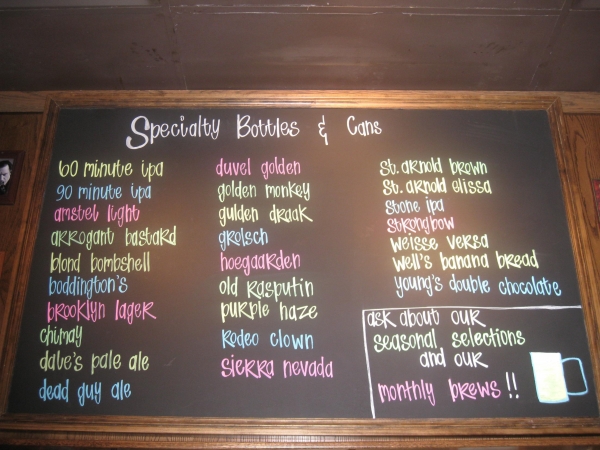 Specialty Bottles & Cans
60 minute ipa
90 minute ipa
amstel light
arrogant bastard
blond bombshell
boddington's
brooklyn lager
chimay
dale's pale ale
dead guy ale
duvel golden
golden monkey
gulden draak
grolsch
hoegaarden
old rasputin
purple haze
rodeo clown
sierra nevada
St. arnold brown
St. arnold elissa
stone ipa
strongbow
weisse versa
well's banana bread
young's double chocolate
ask about our
seasonal selections
and our
monthly brews !!